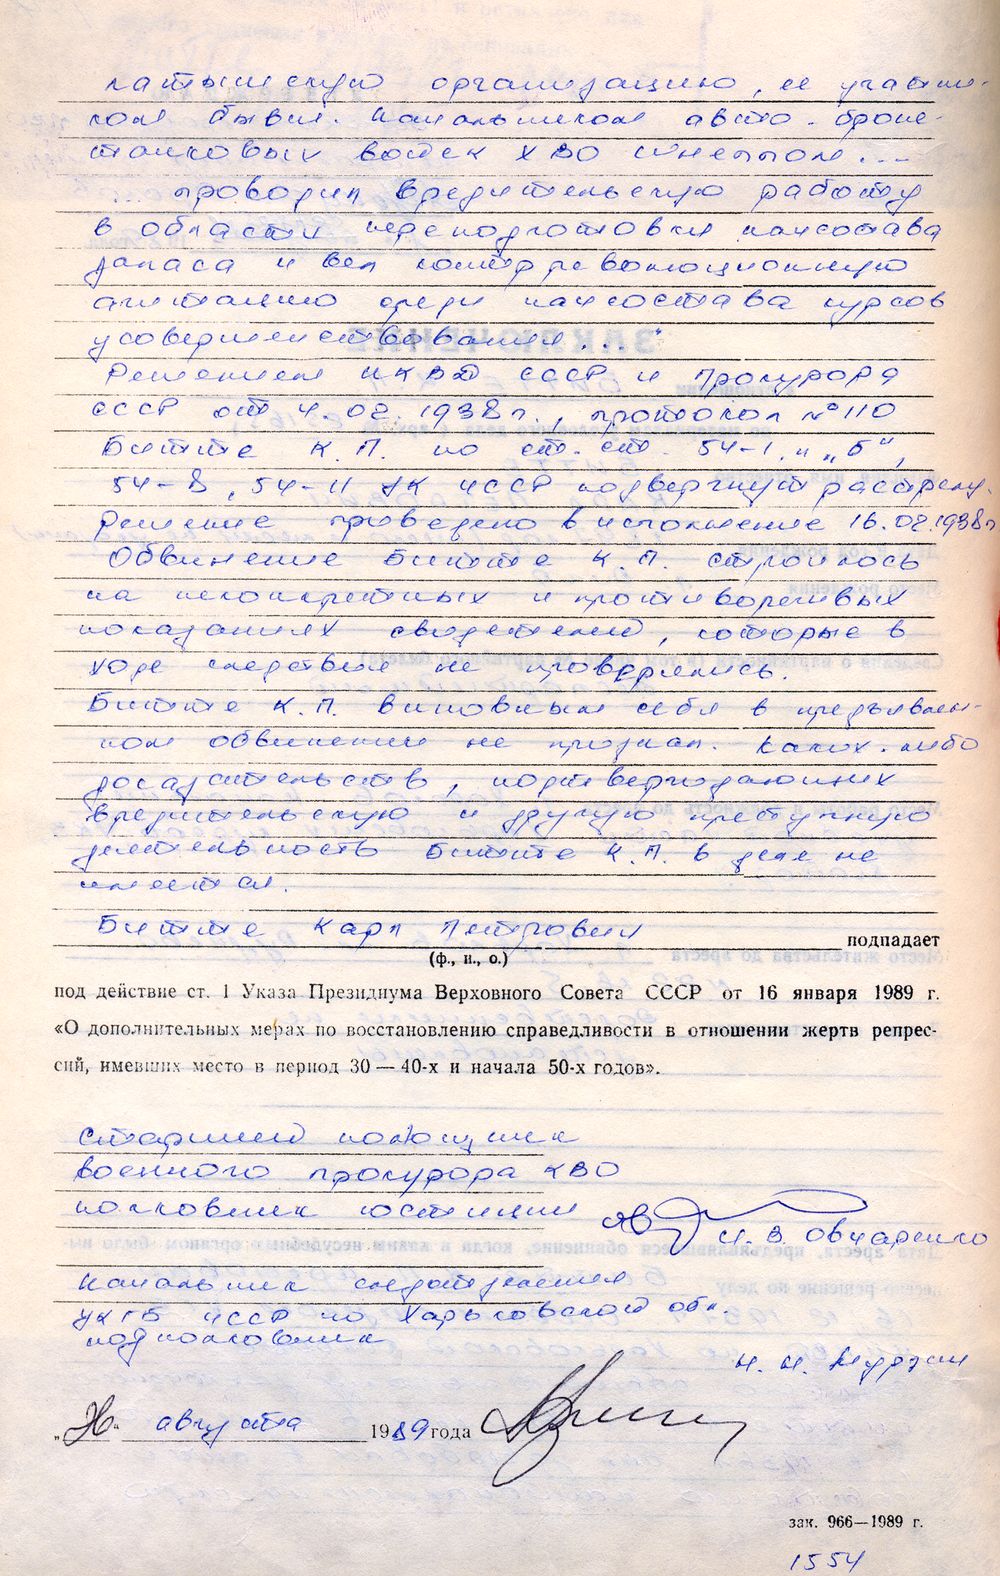 латышскую организацию, ее участни-
ком бывш. начальником авто-броне-
танковых войск ХВО Игнеллом...
... проводил вредительскую работу
в области переподготовки начсостава
запаса и вел контрреволюционную
агитацию среди начсостава курсов
усовершенствования..."
Решением НКВД СССР и Прокурора
СССР от 4.02.1938 г., протокол № 110
Битте К.П. по ст. ст. 54-1 „б",
54-8, 54-11 УК УССР подвергнут расстрелу.
Решение приведено в исполнение 16.02.1938 г
Обвинение Битте К.П. строилось
на неконкретных и противоречивых
показаниях свидетелей, которые в
ходе следствия не проверялись.
Битте К.П. виновным себя в предъявлен-
ном обвинении не признал. Каких-либо
доказательств, подтверждающих
вредительскую и другую преступную
деятельность Битте К.П. в деле не
имеется.
Битте Карл Петрович подпадает
(ф., и., о.)
под действие ст. 1 Указа Президиума Верховного Совета СССР от 16 января 1989 г.
«О дополнительных мерах по восстановлению справедливости в отношении жертв репрес-
сий, имевших место в период 30—40-х и начала 50-х годов».
Старший помощник
военного прокурора КВО
полковник юстиции
И. В. Овчаренко
Начальник следотделения
УКГБ УССР по Харьковской обл.
подполковник
Н. Н. Мурзин
августа 1989 года
зак. 966—1989 г.
1554